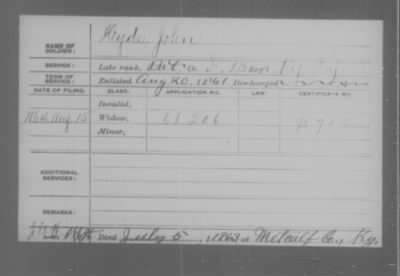 NAME OF SOLDIER: Hyde, John
SERVICE: Late rank, Co. 13 Reg't Ky
TERM OF SERVICE: Enlisted Aug 20, 1861 Discharged
DATE OF FILING. CLASS. APPLICATION NO. LAW. CERTIFICATE NO.
Invalid,
1864 Aug. 15 Widow, 61 206
Minor,
ADDITIONAL SERVICES:
REMARKS:
Died July 5, 1863 at Metcalf Co, Ky.